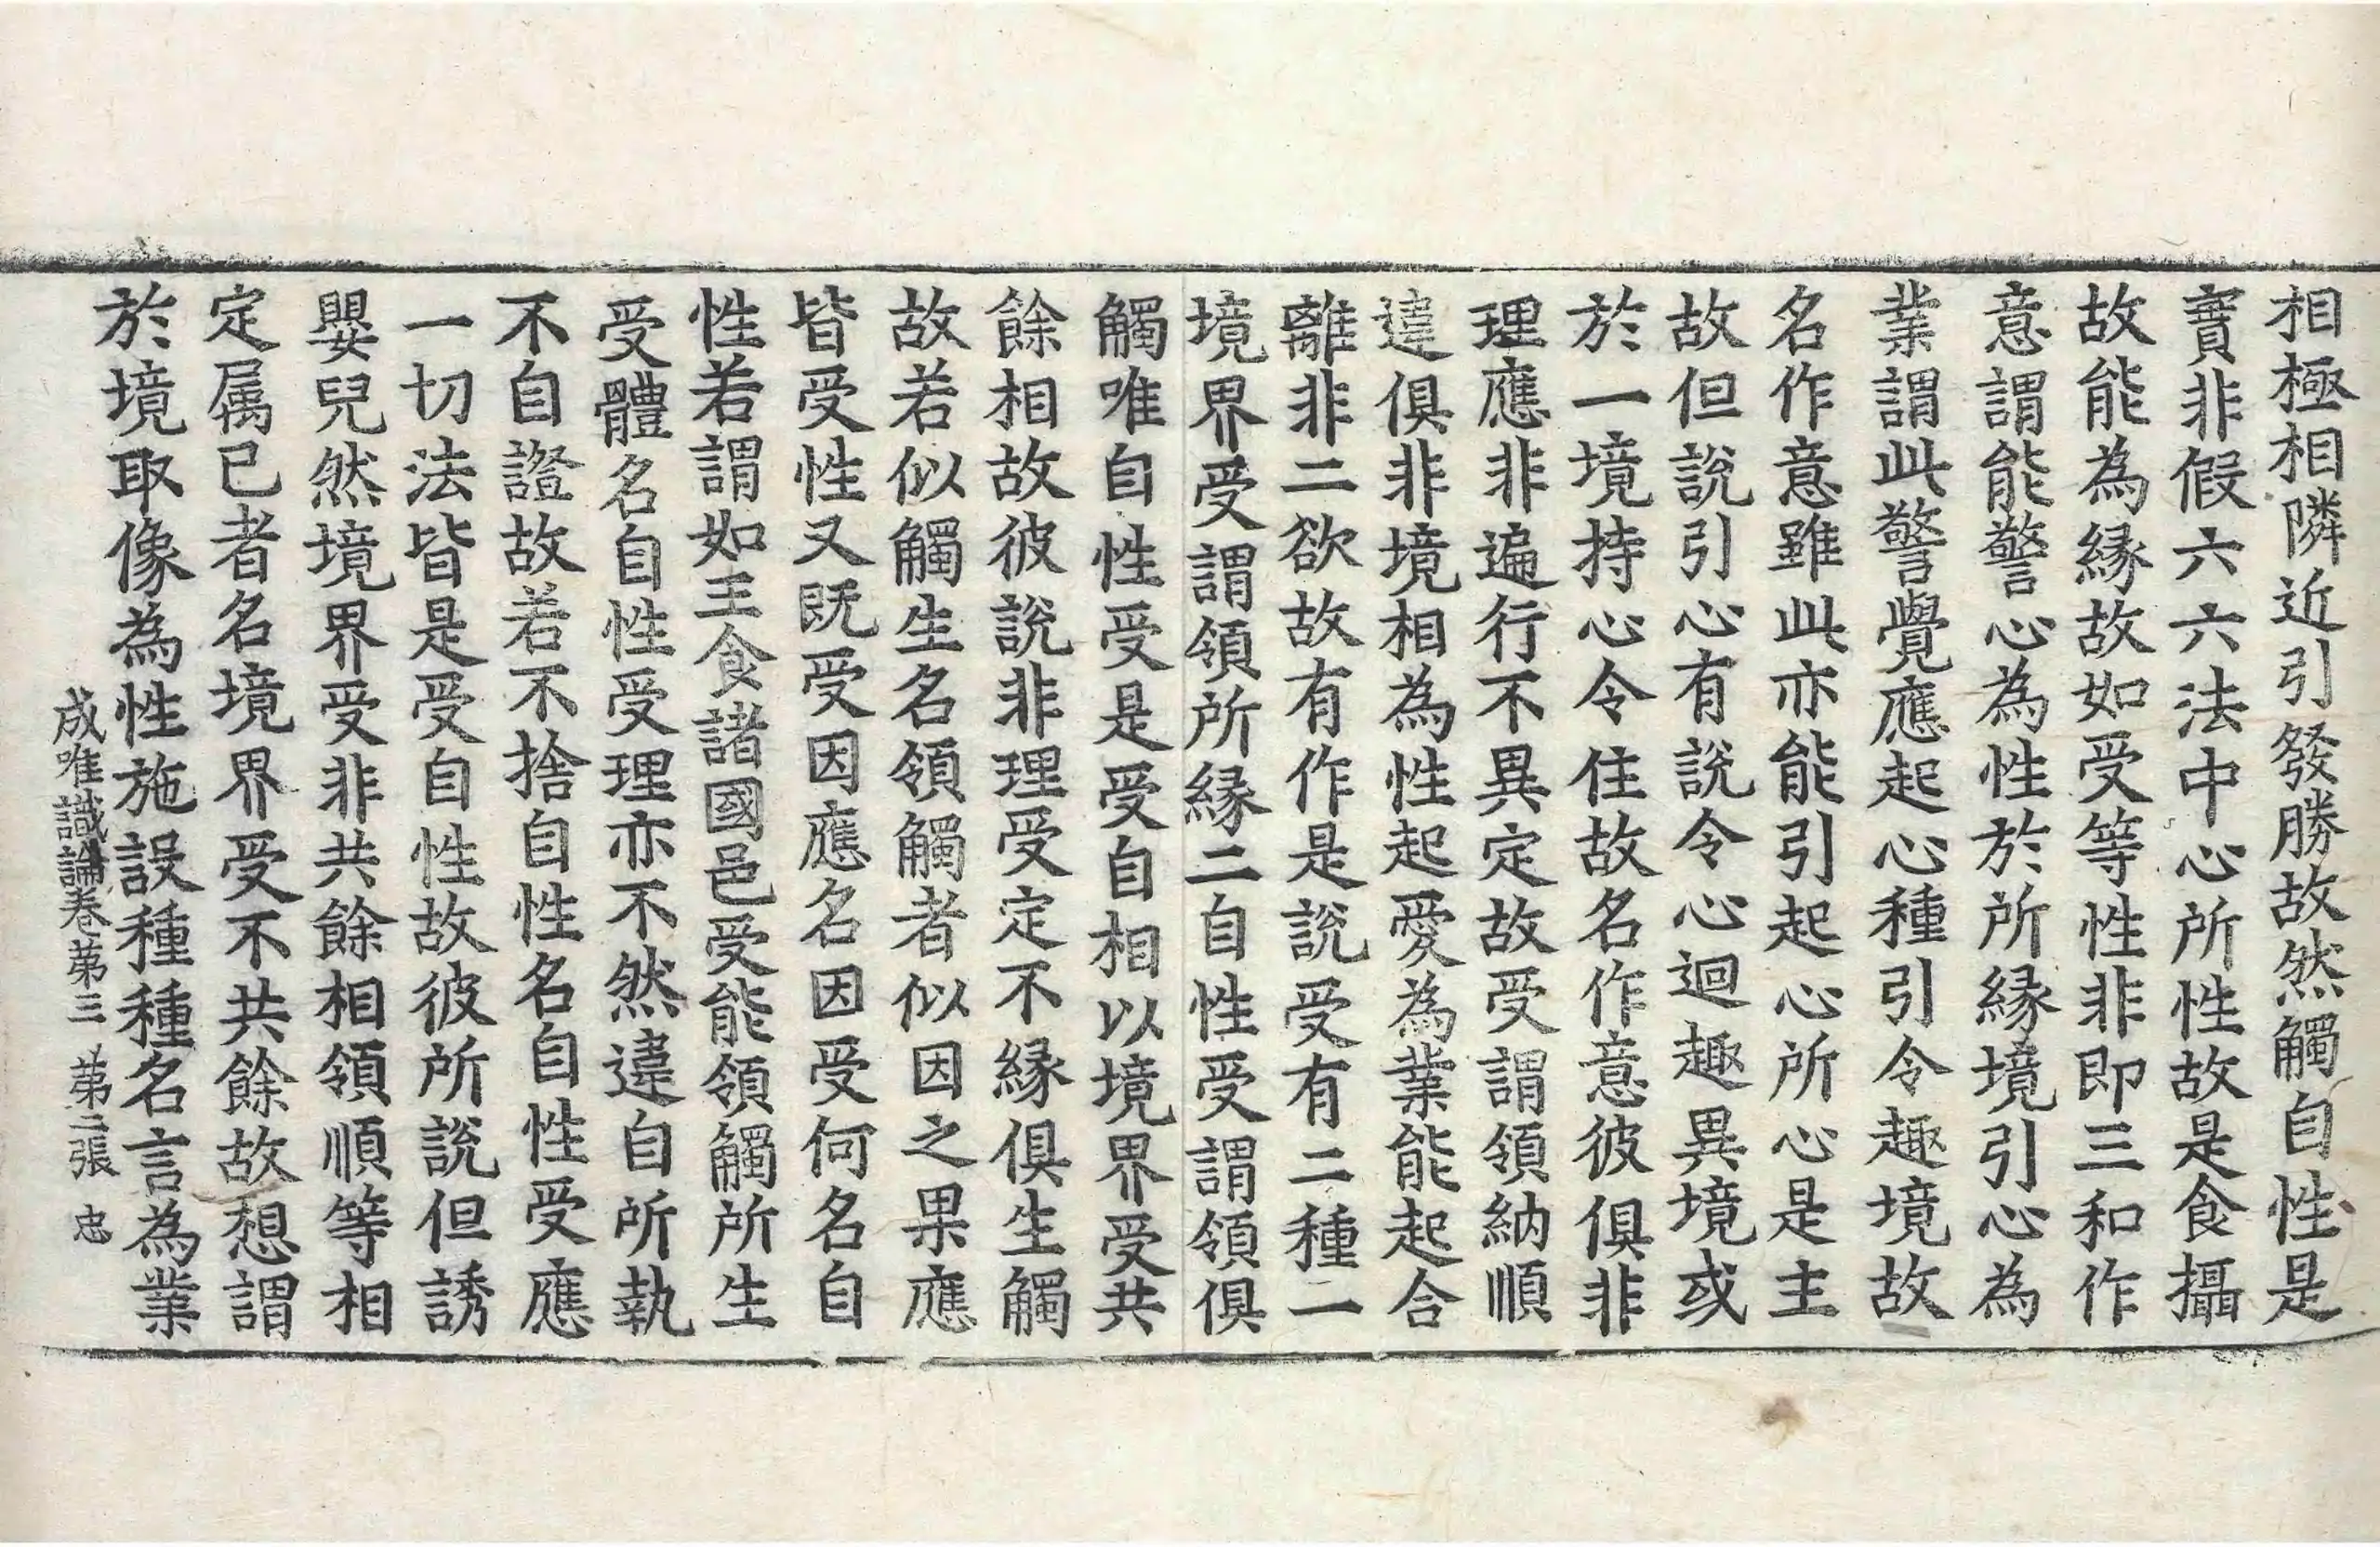 相極相隣近引發勝故然觸自性是
實非假六六法中心所性故是食攝
故能為緣故如受等性非即三和作
意謂能警心為性於所緣境引心為
業謂此警覺應起心種引令趣境故
名作意雖此亦能引起心所心是主
故但說引心有說令心迴趣異境或
於一境持心令住故名作意彼俱非
理應非遍行不異定故受謂領納順
違俱非境相為性起愛為業能起合
離非二欲故有作是說受有二種一
境界受謂領所緣二自性受謂領俱
觸唯自性受是受自相以境界受共
餘相故彼說非理受定不緣俱生觸
故若似觸生名領觸者似因之果應
皆受性又既受因應名因受何名自
性若謂如王食諸國邑受能領觸所生
受體名自性受理亦不然違自所執
不自證故若不捨自性名自性受應
一切法皆是受自性故彼所說但誘
嬰兒然境界受非共餘相領順等相
定属己者名境界受不共餘故想謂
於境取像為性施設種種名言為業
成唯識論卷苐三 苐二張 忠